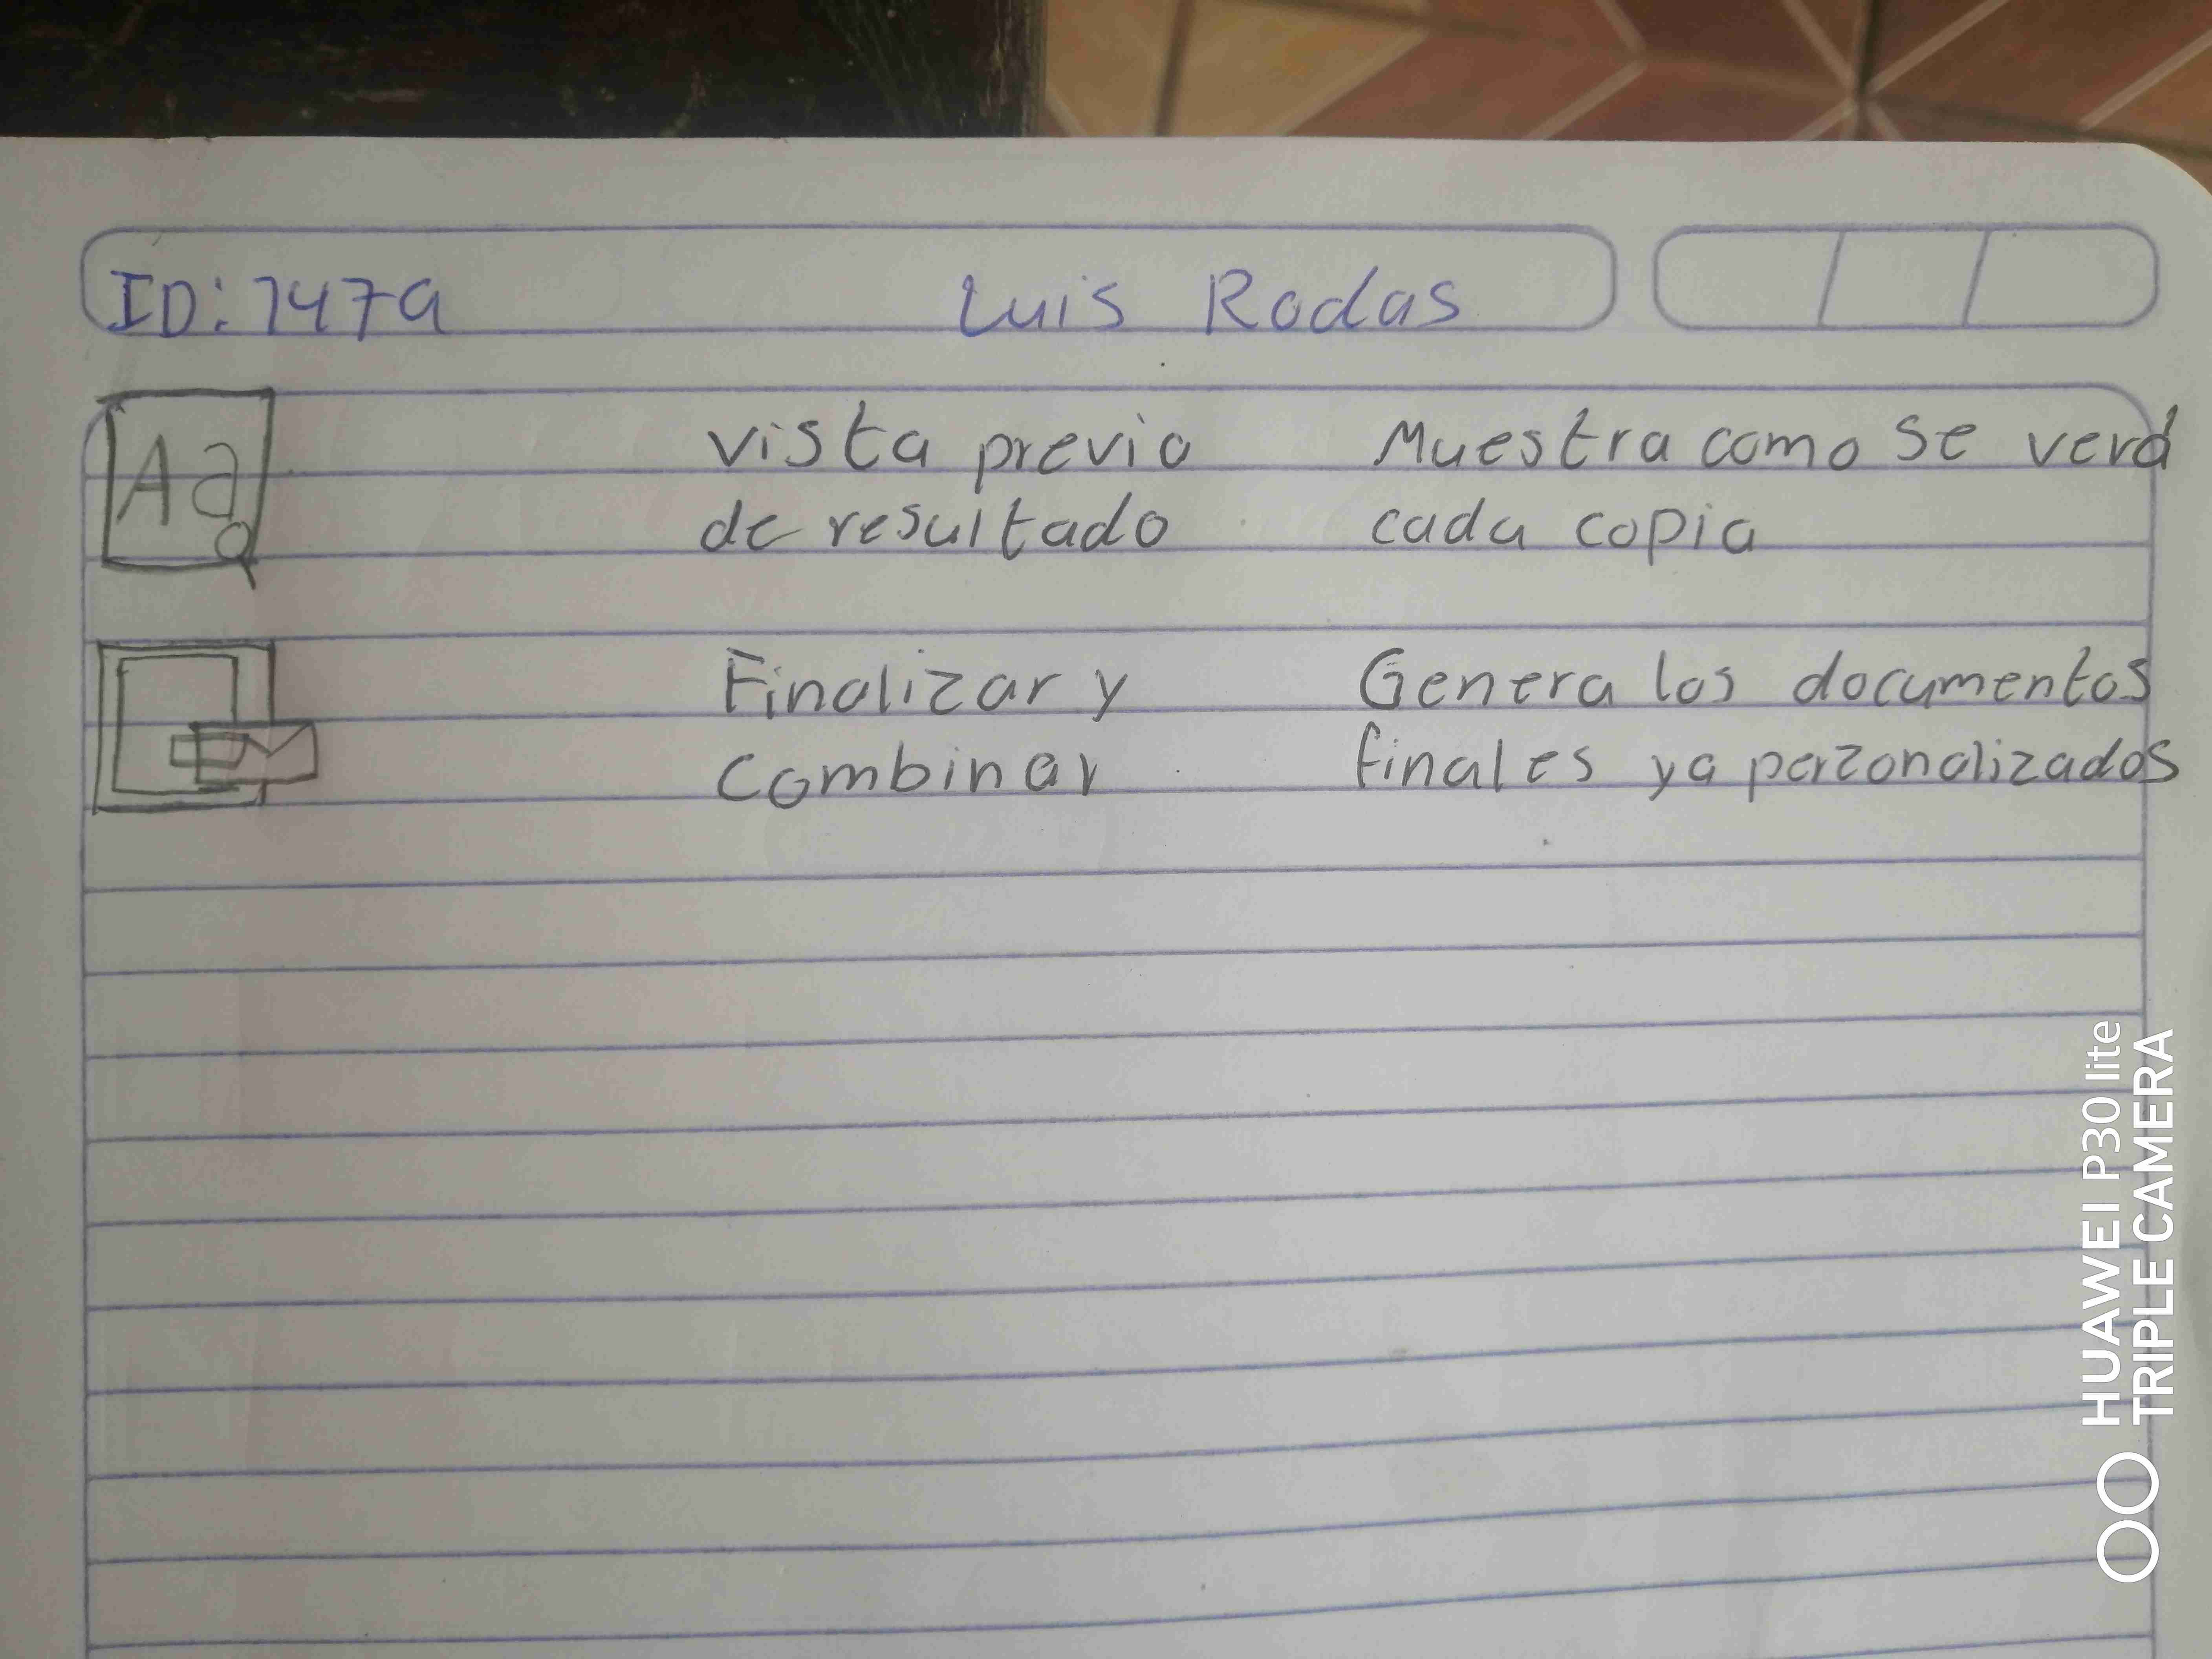 ID: 7479 Luis Rodas
Aa
vista previa Muestra como se verá
de resultado cada copia
Finalizar y Genera los documentos
Combinar finales ya perzonalizados
HUAWEI P30 lite
TRIPLE CAMERA